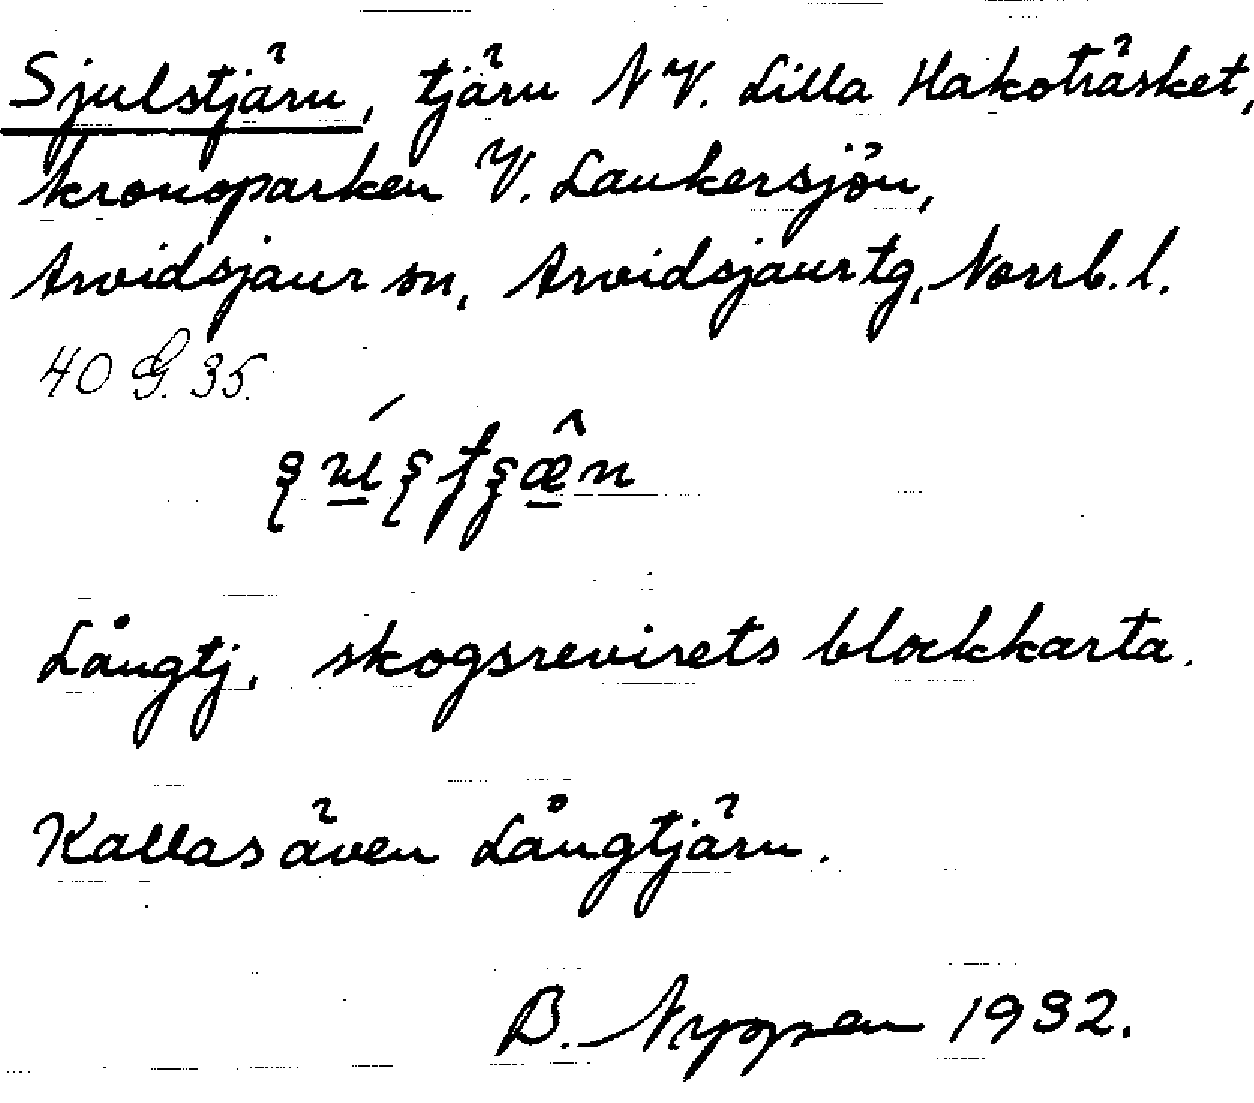 Sjulstjärn, tjärn NV. Lilla Hakoträsket,
kronoparken V. Laukersjön,
Arvidsjaur sn, Arvidsjaurs tg, Norrb. l.
40 G. 35.
Långtj. skogsrevirets blockkarta.
Kallas även Långtjärn.
B. 1932.